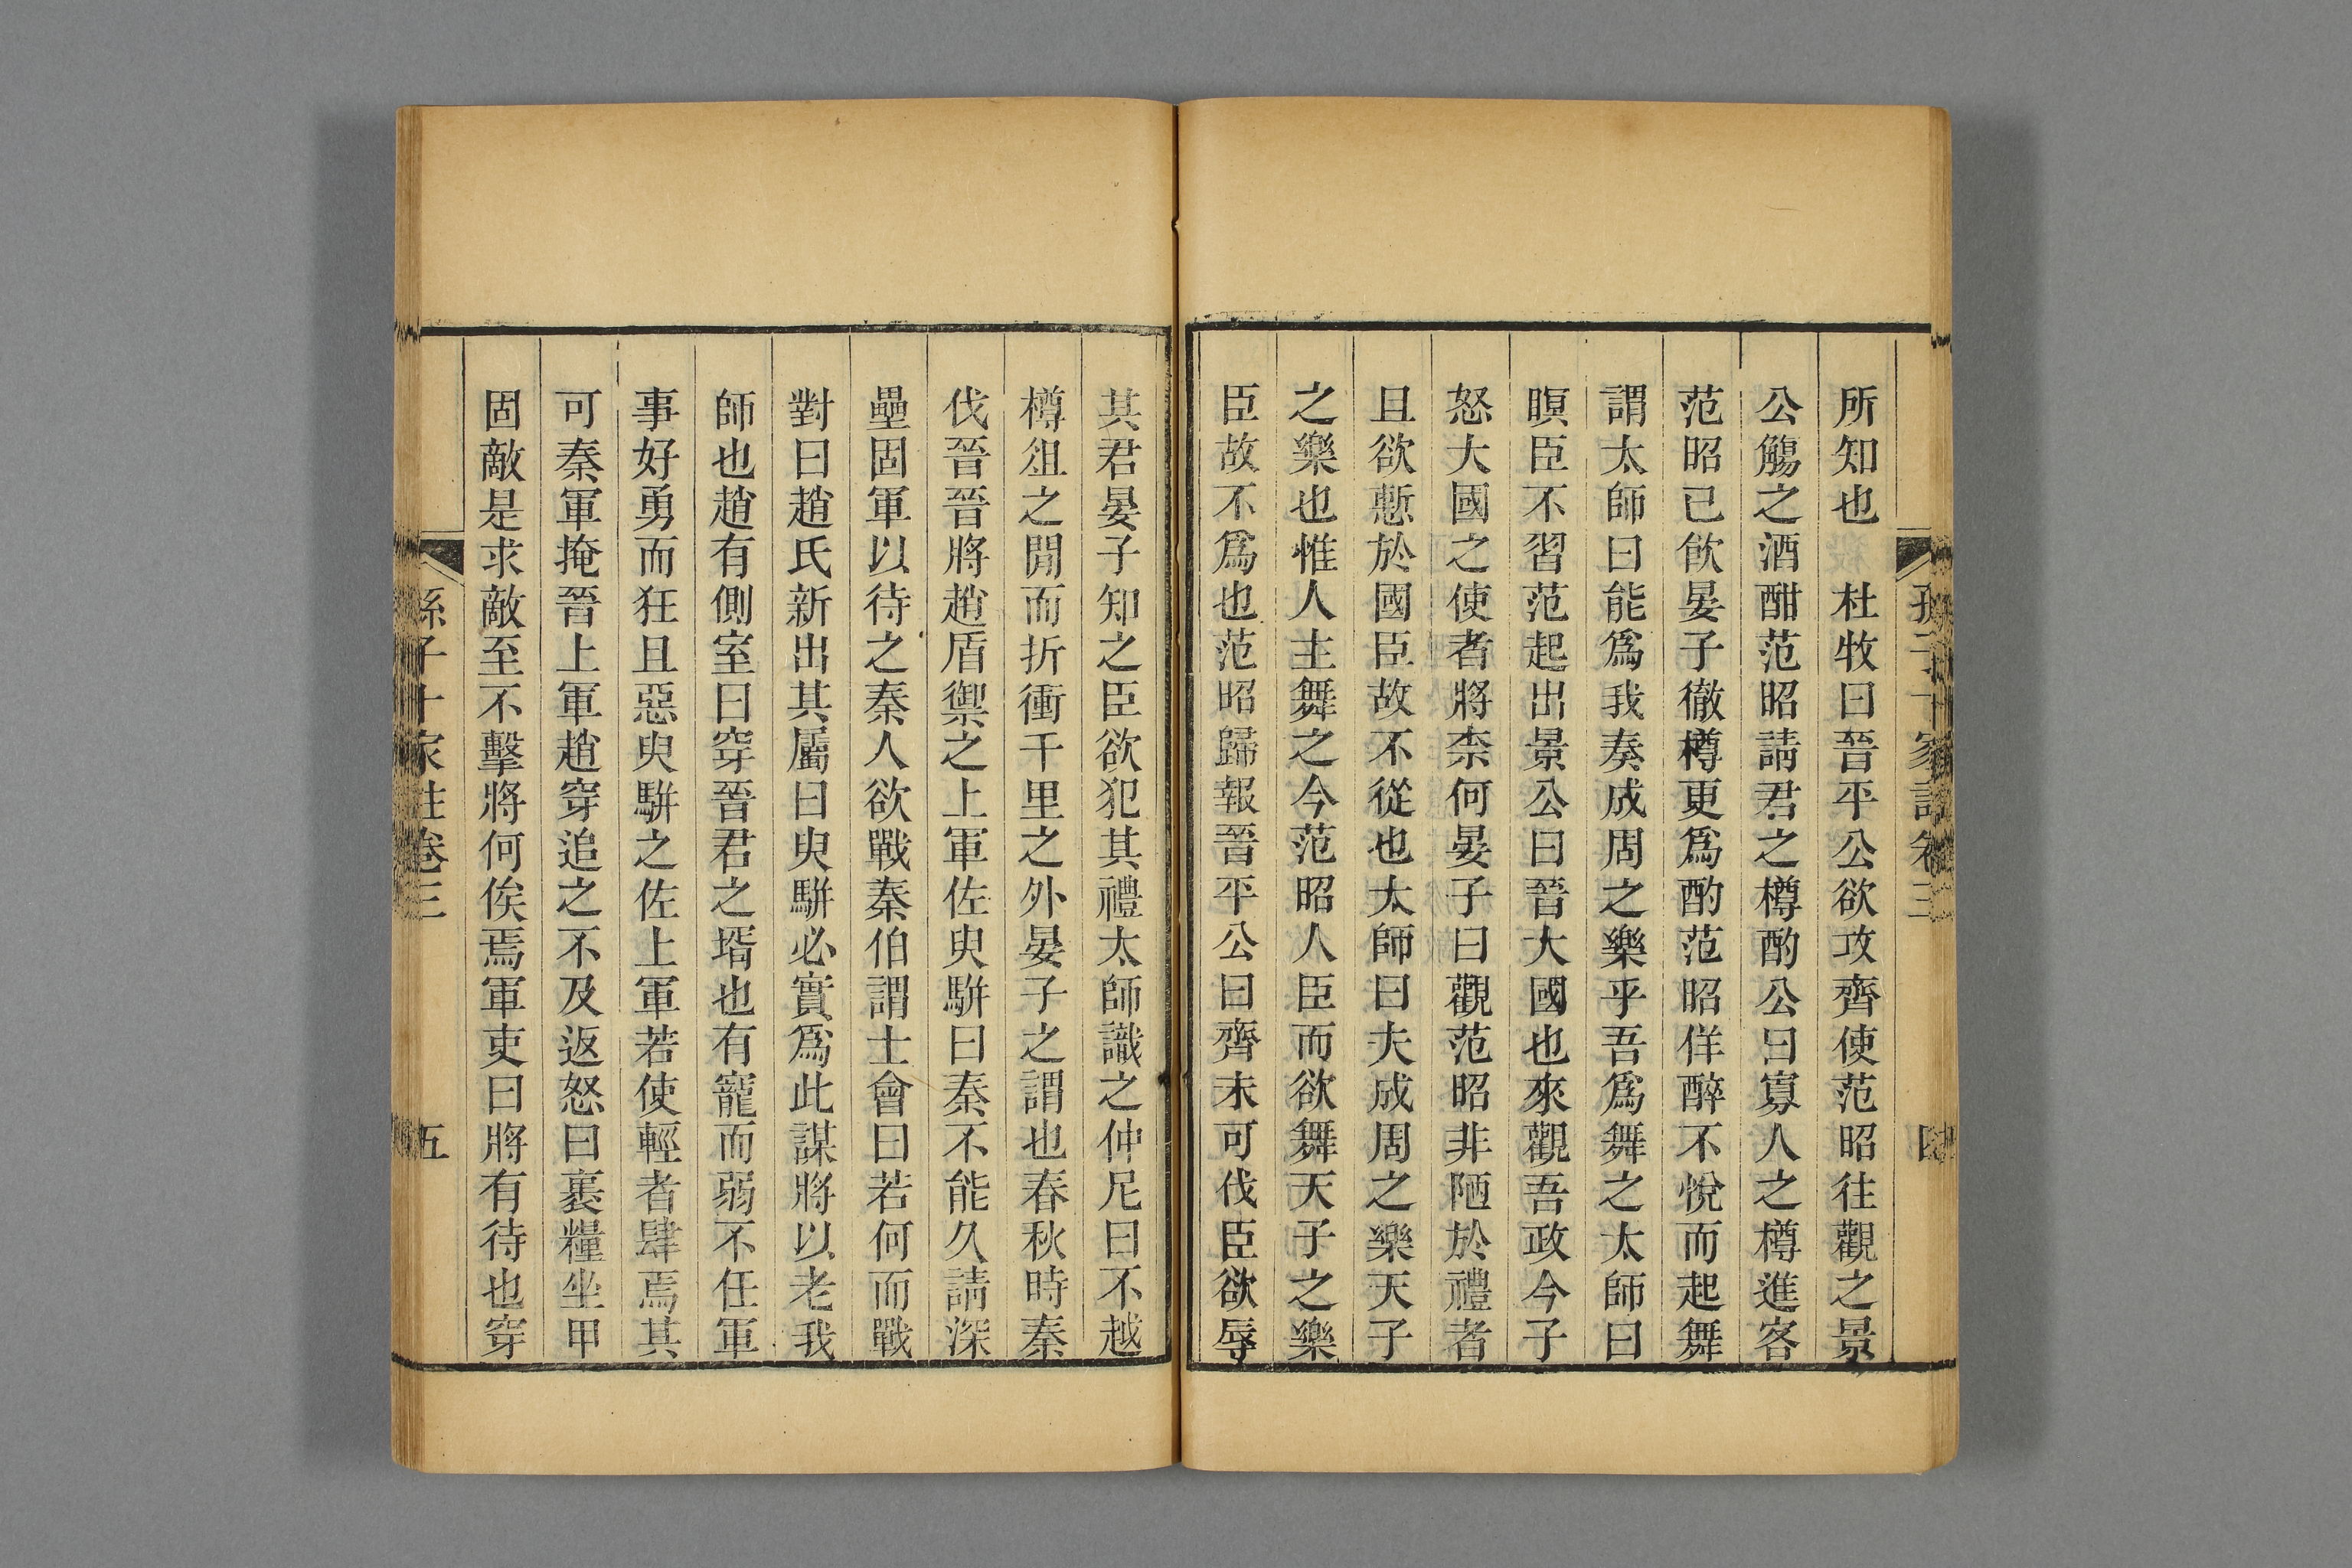 孫子十家註卷三
四
所知也　杜牧曰晉平公欲攻齊使范昭往觀之景
公觴之酒酣范昭請君之樽酌公曰寡人之樽進客
范昭已飲晏子徹樽更爲酌范昭佯醉不悅而起舞
謂太師曰能爲我奏成周之樂乎吾爲舞之太師曰
瞑臣不習范起出景公曰晉大國也來觀吾政今子
怒大國之使者將柰何晏子曰觀范昭非陋於禮者
且欲慙於國臣故不從也太師曰夫成周之樂天子
之樂也惟人主舞之今范昭人臣而欲舞天子之樂
臣故不爲也范昭歸報晉平公曰齊未可伐臣欲辱
其君晏子知之臣欲犯其禮太師識之仲尼曰不越
樽俎之閒而折衝千里之外晏子之謂也春秋時秦
伐晉晉將趙盾禦之上軍佐臾駢曰秦不能久請深
壘固軍以待之秦人欲戰秦伯謂士會曰若何而戰
對曰趙氏新出其屬曰臾駢必實爲此謀將以老我
師也趙有側室曰穿晉君之壻也有寵而弱不任軍
事好勇而狂且惡臾駢之佐上軍若使輕者肆焉其
可秦軍掩晉上軍趙穿追之不及返怒曰裹糧坐甲
固敵是求敵至不擊將何俟焉軍吏曰將有待也穿
孫子十家註卷三
五